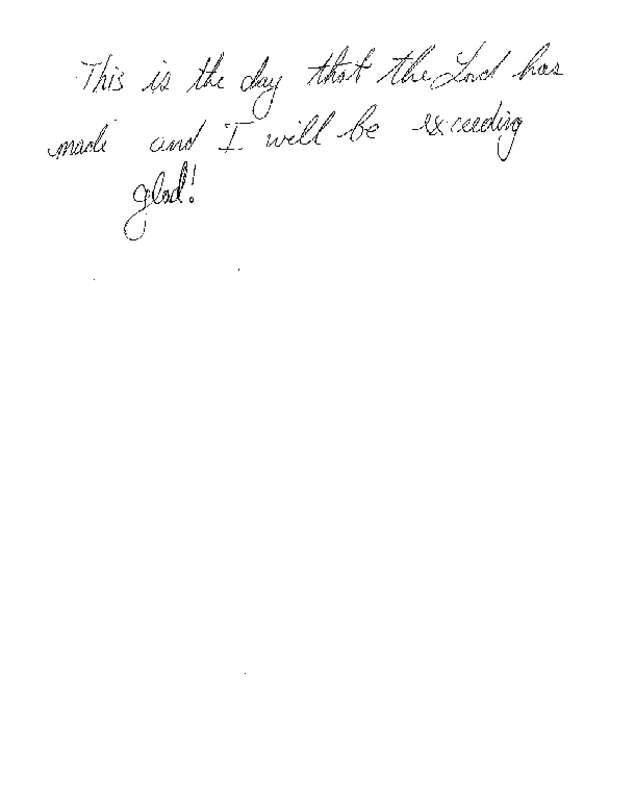 This is the day that the Lord has
made and I will be exceeding
glad!